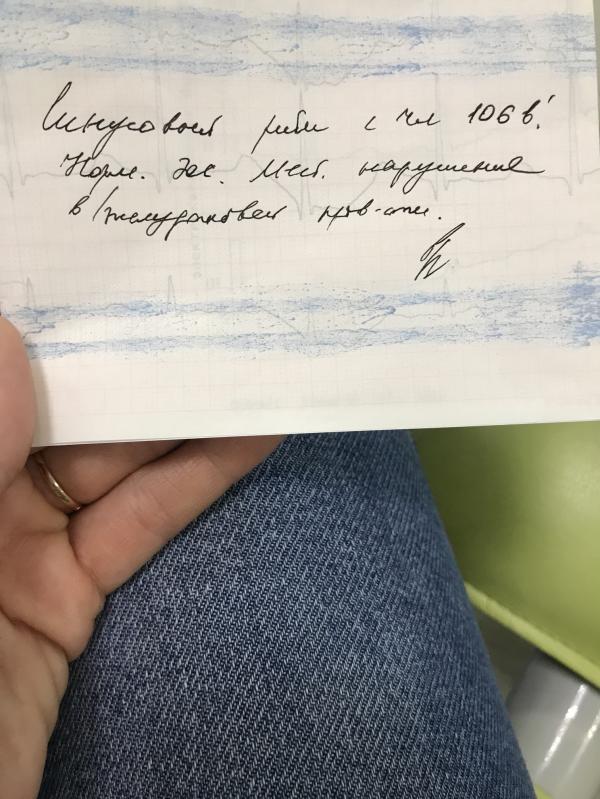 Синусовый ритм с чсс 106 в!
Норм. Эос. Мест. нарушение
в/желудочковой пров-сти.